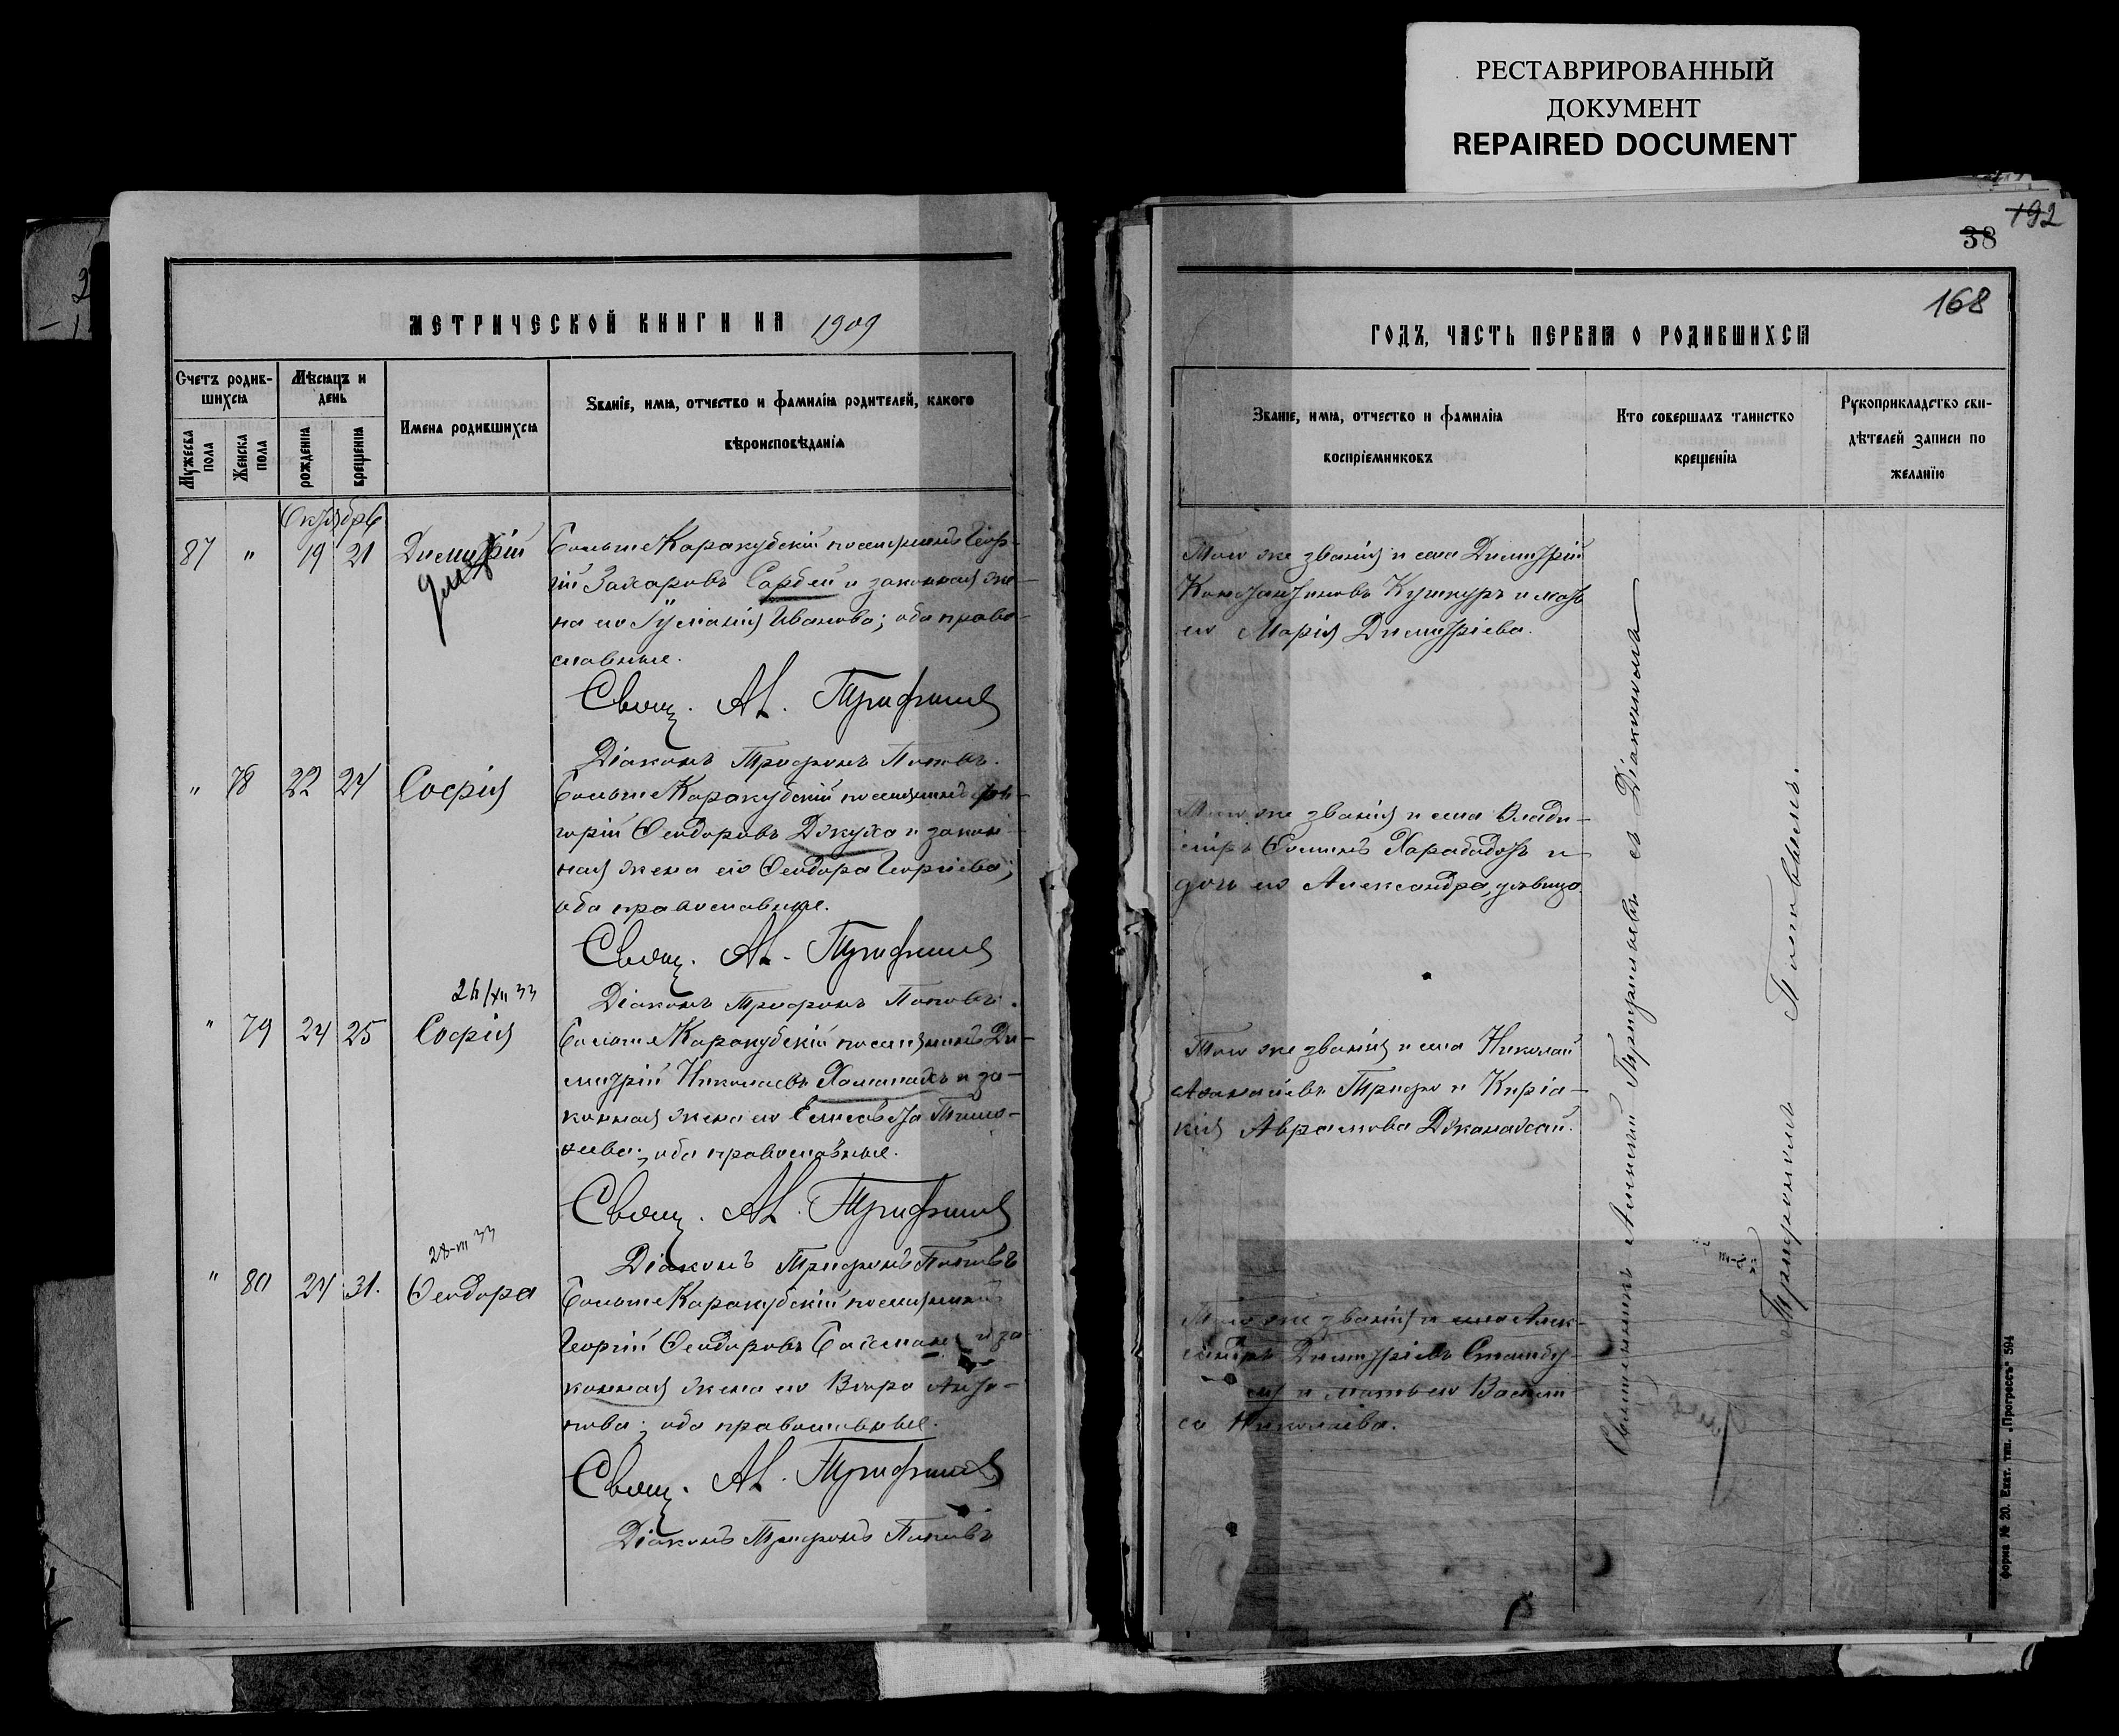 РЕСТАВРИРОВАННЫЙ
ДОКУМЕНТ
REPAIRED DOCUMENT
МЕТРИЧЕСКОЙ КНИГИ НА 1909
Счетъ родив-
шихся
Мужеска
пола
Женска
пола
Мѣсяцъ и
день
рожденія
крещенія
Имена родившихся
Званіе, имя, отчество и фамилія родителей, какого
вѣроисповѣданія
Октябрь
87 " 19 21 Димитрій
Больше Каракубскій поселянинъ Геор-
гій Захаровъ Сарбей и законная же-
на его Іуліанія Иванова; оба право-
славные.
Свящ. Ал. Трифильевъ
Діаконъ Трифонъ Поповъ.
" 78 22 24 Софія
Больше Каракубскій поселянинъ Гри-
горій Ѳеодоровъ Джуха и закон-
ная жена его Ѳеодора Георгіева;
оба православные.
Свящ. Ал. Трифильевъ
Діаконъ Трифонъ Поповъ.
" 79 24 25 Софія
Больше Каракубскій поселянинъ Ди-
митрій Николаевъ и за-
конная жена его Елисавета
оба православные.
Свящ. Ал. Трифильевъ
Діаконъ Трифонъ Поповъ
" 80 24 31. Ѳеодора
Больше Каракубскій поселянинъ
Георгій Ѳеодоровъ и за-
конная жена его Анто-
нова; оба православные.
Свящ. Ал. Трифильевъ
Діаконъ Трифонъ Поповъ
192
38
168
ГОДЪ, ЧАСТЬ ПЕРВАЯ О РОДИВШИХСЯ
Званіе, имя, отчество и фамилія
воспріемниковъ
Кто совершалъ таинство
крещенія
Рукоприкладство сви-
дѣтелей записи по
желанію
Того же званія и села Димитрій
Константиновъ Кушкуръ и мать
его Марія Димитріева.
Того же званія и села Влади-
міръ Харабадотъ и
дочь его Александра, дѣвица
Того же званія и села Николай
Аѳанасіевъ и Киріа-
кія Аврамова Джанаксай.
Того же званія и села Алек-
сандръ Димитріевъ Стамбу-
лъ и мать его Васили-
са Николаева.
Священникъ Алексій Трифильевъ съ Діакономъ
Трифономъ Поповымъ.
форма № 20. Екат. тип. „Прогрессъ" 594